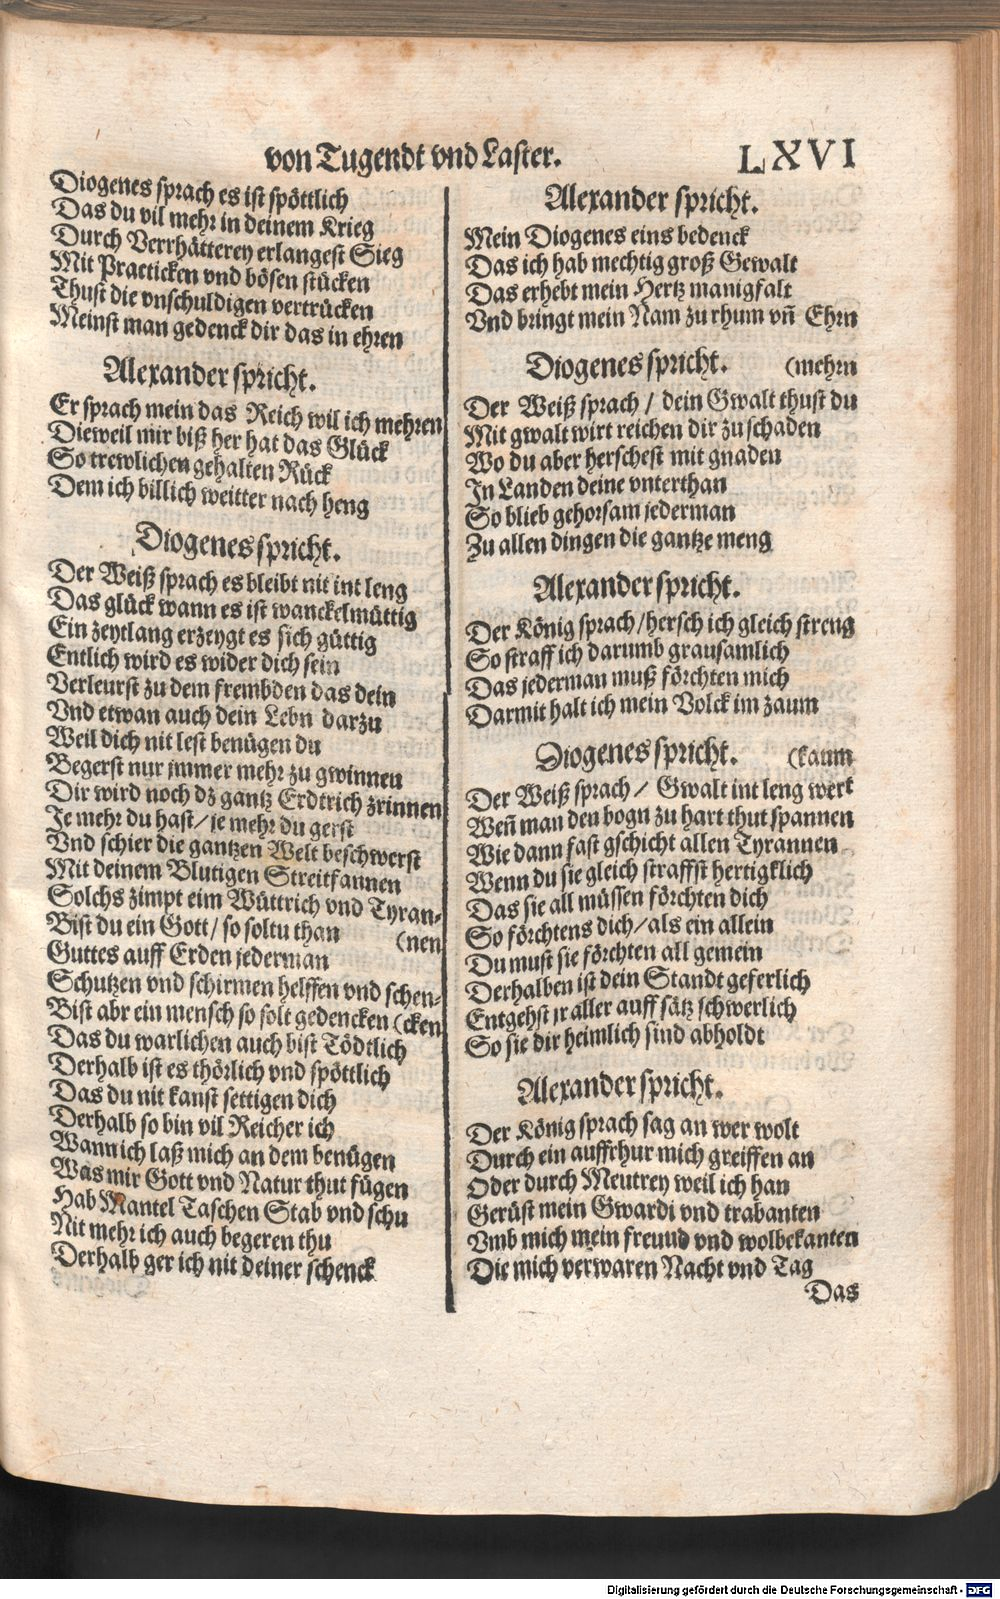 von Tugendt vnd Laster.
LXVI
Diogenes sprach es ist spöttlich
Das du vil mehr in deinem Krieg
Durch Verrhätterey erlangest Sieg
Mit Practicken vnd bösen stücken
Thust die vnschuldigen vertrücken
Meinst man gedenck dir das in ehren
Alexander spricht.
Er sprach mein das Reich wil ich mehren
Dieweil mir biß her hat das Glück
So trewlichen gehalten Rück
Dem ich billich weitter nach heng
Diogenes spricht.
Der Weiß sprach es bleibt nit int leng
Das glück wann es ist wanckelmüttig
Ein zeytlang erzeygt es sich güttig
Entlich wird es wider dich sein
Verleurst zu dem frembden das dein
Vnd etwan auch dein Lebn darzu
Weil dich nit lest benügen du
Begerst nur jmmer mehr zu gwinnen
Dir wird noch dz gantz Erdtrich zrinnen
Je mehr du hast/ je mehr du gerst
Vnd schier die gantzen Welt beschwerst
Mit deinem Blutigen Streitfannen
Solchs zimpt eim Wüttrich vnd Tyran-
Bist du ein Gott/ so soltu than (nen
Guttes auff Erden jederman
Schutzen vnd schirmen helffen vnd schen-
Bist abr ein mensch so solt gedencken (cken
Das du warlichen auch bist Tödtlich
Derhalb ist es thörlich vnd spöttlich
Das du nit kanst settigen dich
Derhalb so bin vil Reicher ich
Wann ich laß mich an dem benügen
Was mir Gott vnd Natur thut fügen
Hab Mantel Taschen Stab vnd schu
Nit mehr ich auch begeren thu
Derhalb ger ich nit deiner schenck
Alexander spricht.
Mein Diogenes eins bedenck
Das ich hab mechtig groß Gewalt
Das erhebt mein Hertz manigfalt
Vnd bringt mein Nam zu rhum vñ Ehrn
Diogenes spricht. (mehrn
Der Weiß sprach / dein Gwalt thust du
Mit gwalt wirt reichen dir zu schaden
Wo du aber herschest mit gnaden
In Landen deine vnterthan
So blieb gehorsam jederman
Zu allen dingen die gantze meng
Alexander spricht.
Der König sprach/hersch ich gleich streng
So straff ich darumb grausamlich
Das jederman muß förchten mich
Darmit halt ich mein Volck im zaum
Diogenes spricht. (kaum
Der Weiß sprach / Gwalt int leng wert
Weñ man den bogn zu hart thut spannen
Wie dann fast gschicht allen Tyrannen
Wenn du sie gleich straffst hertigklich
Das sie all müssen förchten dich
So förchtens dich/als ein allein
Du must sie förchten all gemein
Derhalben ist dein Standt geferlich
Entgehst jr aller auff sätz schwerlich
So sie dir heimlich sind abholdt
Alexander spricht.
Der König sprach sag an wer wolt
Durch ein auffrhur mich greiffen an
Oder durch Meutrey weil ich han
Gerüst mein Gwardi vnd trabanten
Vmb mich mein freund vnd wolbekanten
Die mich verwaren Nacht vnd Tag
Das
Digitalisierung gefördert durch die Deutsche Forschungsgemeinschaft - DFG